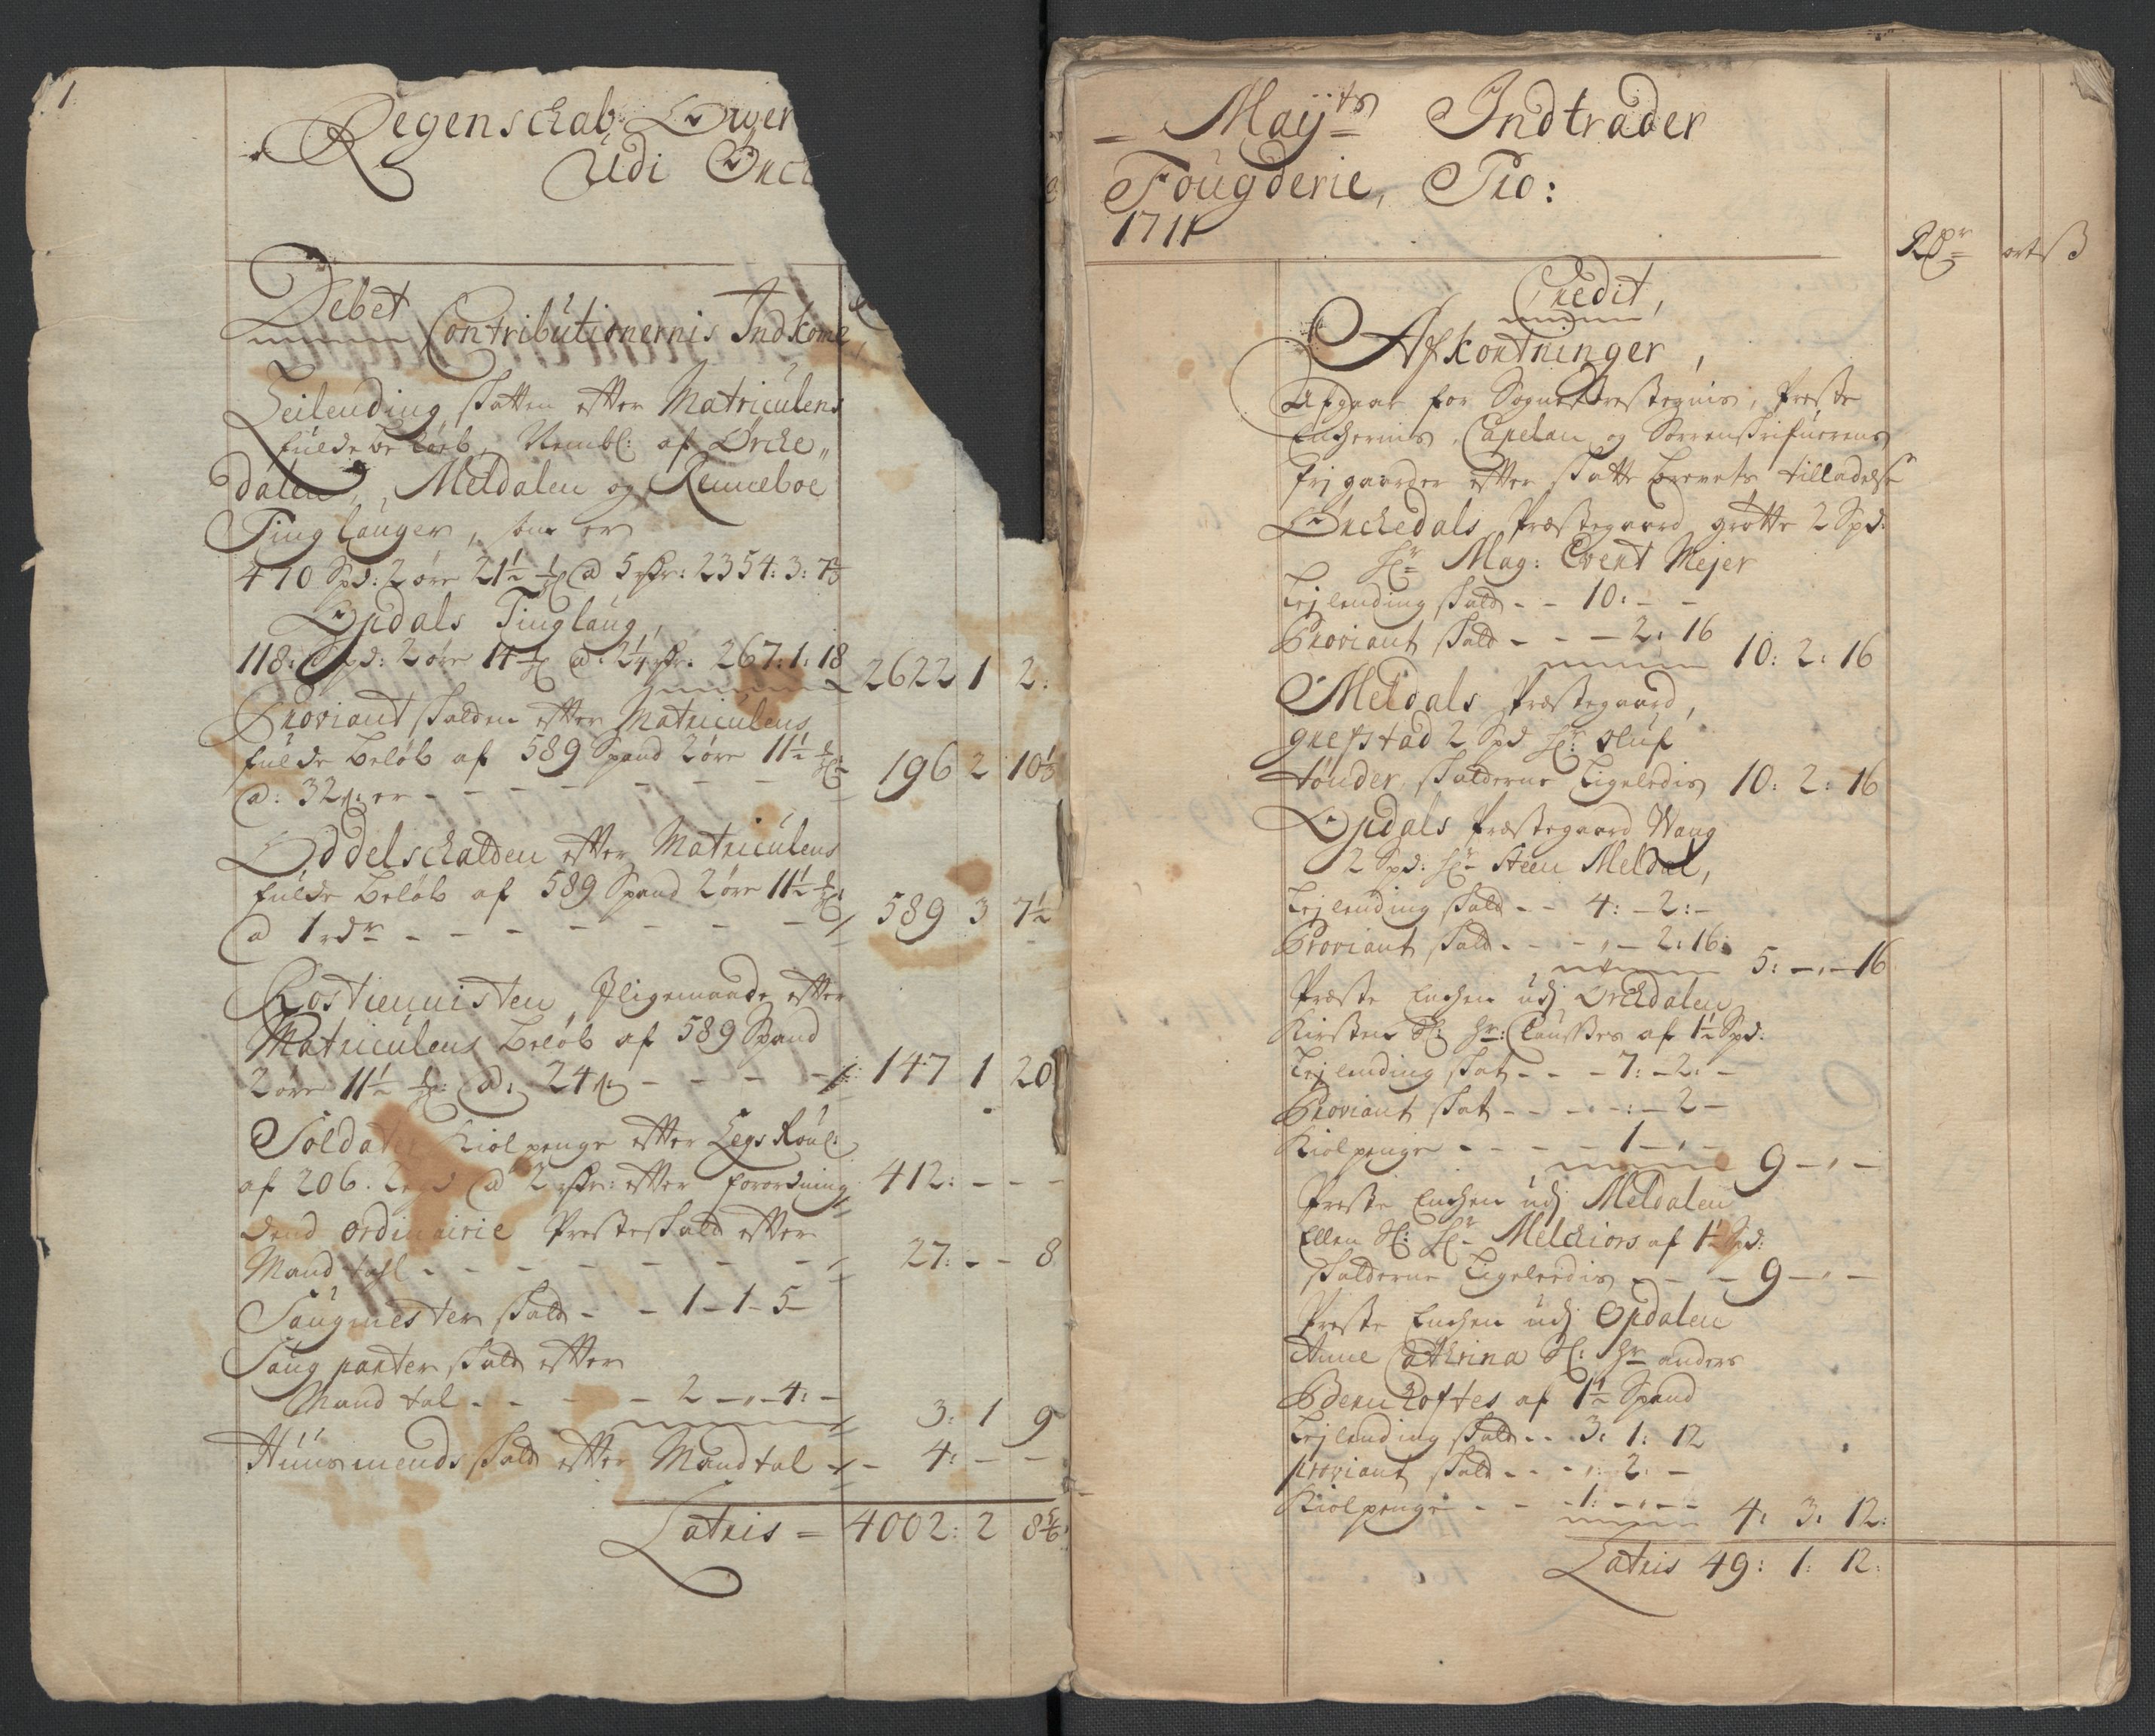 1.
Regenschab Ower
Udi Orck
Debet
Contributionernis Indkome
Leilending skatten efter Matriculens
fulde beløb, Nembl: af Orcke„
dalen, Meldalen og Renneboe
Tinglauger, som er
470 Spd: 2 øre 21½ @ 5 rdr: 2354: 3: 7½
Opdals Tinglaug,
118: Spd: 2 øre 14 @ 2¼ rdr: 267: 1: 18 2622 1 2:
Proviant skatden efter Matriculens
fulde beløb af 589 Spand 2 øre 11½
@: 32 s: er - - - - - - 196 2 10⅓
Oddelschatden efter Matriculens
fulde beløb af 589 Spand 2 øre 11½
@ 1 rdr - - - - - - - 589 3 7½
Rostiennisten Jligemaade efter
Matriculens beløb af 589 Spand
2 øre 11½ @: 24 s - - - - 147 1 20
Soldater Kiolpenge efter Legs Roul:
af 206. Legd @ 2 rdr: efter forordning 412: - - -
Dend ordinairie Presteskatd efter
Mandtahl - - - - - - - 27: - - 8
Saugmester skatd - - 1 - 1 - 5 -
Saug parter skatd efter
Mand tal - - - - 2 - , - 4: - 3: 1 9
Huusmends skatd efter Mandtal - - 4: - -
Latris = 4002: 2 8⅚
Mayts Indtrader
Fougderie, Pro:
1711
Rdr ort s
Credit,
Afkortninger,
Afgaar for Sogne Prestegnis, Preste
Enchernis, Capelan og Sorrenskrifuerens
frj gaarder efter skatte brevets tilladelse
Orchedals Præstegaard grøtte 2 Spd:
Hr Mag: Event Mejer
Lejlending skatd - - 10: - -
Proviant skatd - - - 2: 16 10: 2: 16
Meldals Præstegaard,
grefstad 2 Spd Hr: Oluf
tønder, skatderne Ligeledis 10: 2: 16
Opdals Præstegaard Wang
2 Spd: Hr Steen Meldal,
Lejlending skatd - - 4: - 2: -
Proviant skatd - - - , - 2: 16: 5: - , - 16
Præste Enchen udj Orchdalen
Kirsten Sl: Hr: Clausses af 1½ Spd:
Lejlending skat - - - 7: - 2: -
Proviant skat - - - - : - 2 -
Kiolpenge - - - - - 1 - , - 9 - , -
Preste Enchen udj Meldalen
Ellen Sl: Hr Melchiors af 1½ Spd:
skatderne Ligeledis - - - 9 - , -
Preste Enchen udj Opdalen
Anne Cathrina Sl: Hr anders
af 1½ Spand
Lejlending skatd - - 3: 1: 12
proviant skatd - - - , 2: -
Kiolpenge - - - 1: - , - - 4: 3: 12:
Latris 49: 1: 12: